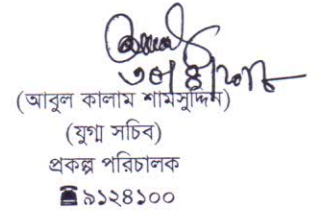 (আবুল কালাম শামসুদ্দিন)
(যুগ্ম সচিব)
প্রকল্প পরিচালক
☎৯১২৪১০০